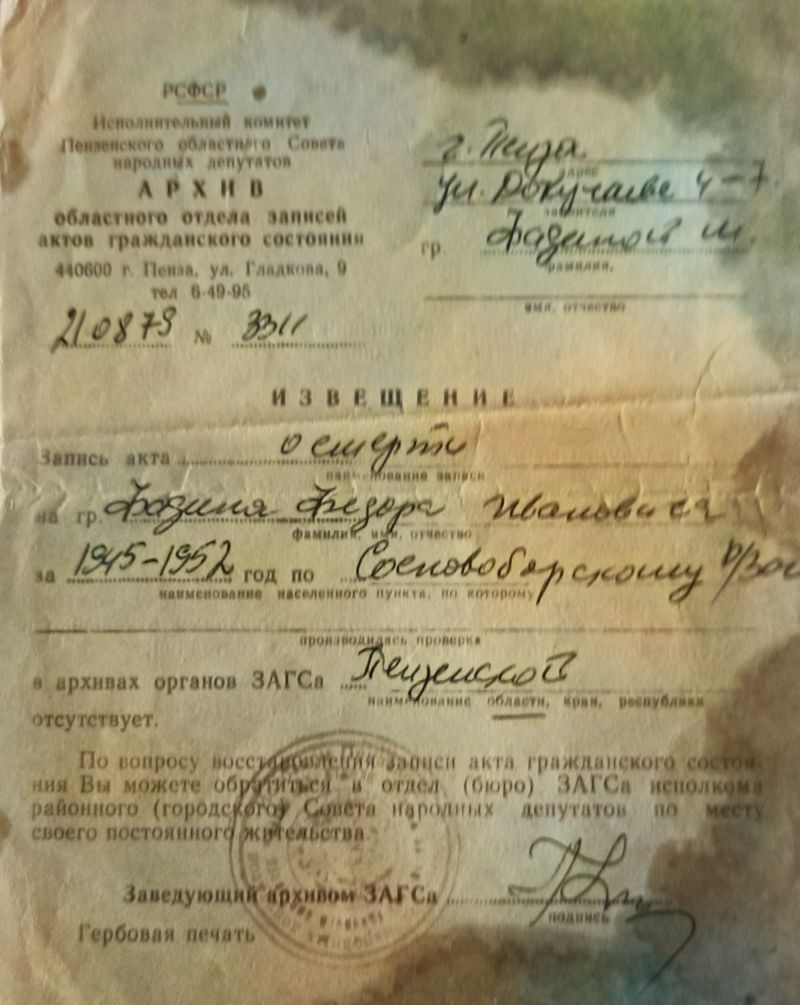 РСФСР
Исполнительный комитет
Пензенского областного Совета
народных депутатов
АРХИВ
областного отдела записей
актов гражданского состояния
440600 г. Пенза, ул. Гладкова, 9
тел 6-49-95
210879 № 3311
г. Пенза
адрес
ул. Докучаева 4-7
заявителя
гр. Фадиной М.
фамилия,
имя, отчество
ИЗВЕЩЕНИЕ
Запись акта о смерти
наименование записи
на гр. Фадина Федора Ивановича
фамилия, имя, отчество
за 1945-1952 год по Сосновоборскому
наименование населенного пункта, по которому
производилась проверка
в архивах органов ЗАГСа Пензенской
наименование области, края, республики
отсутствует.
По вопросу восстановления записи акта гражданского состоя-
ния Вы можете обратиться в отдел (бюро) ЗАГСа исполкома
районного (городского) Совета народных депутатов по месту
своего постоянного жительства.
Заведующий архивом ЗАГСа
подпись
Гербовая печать